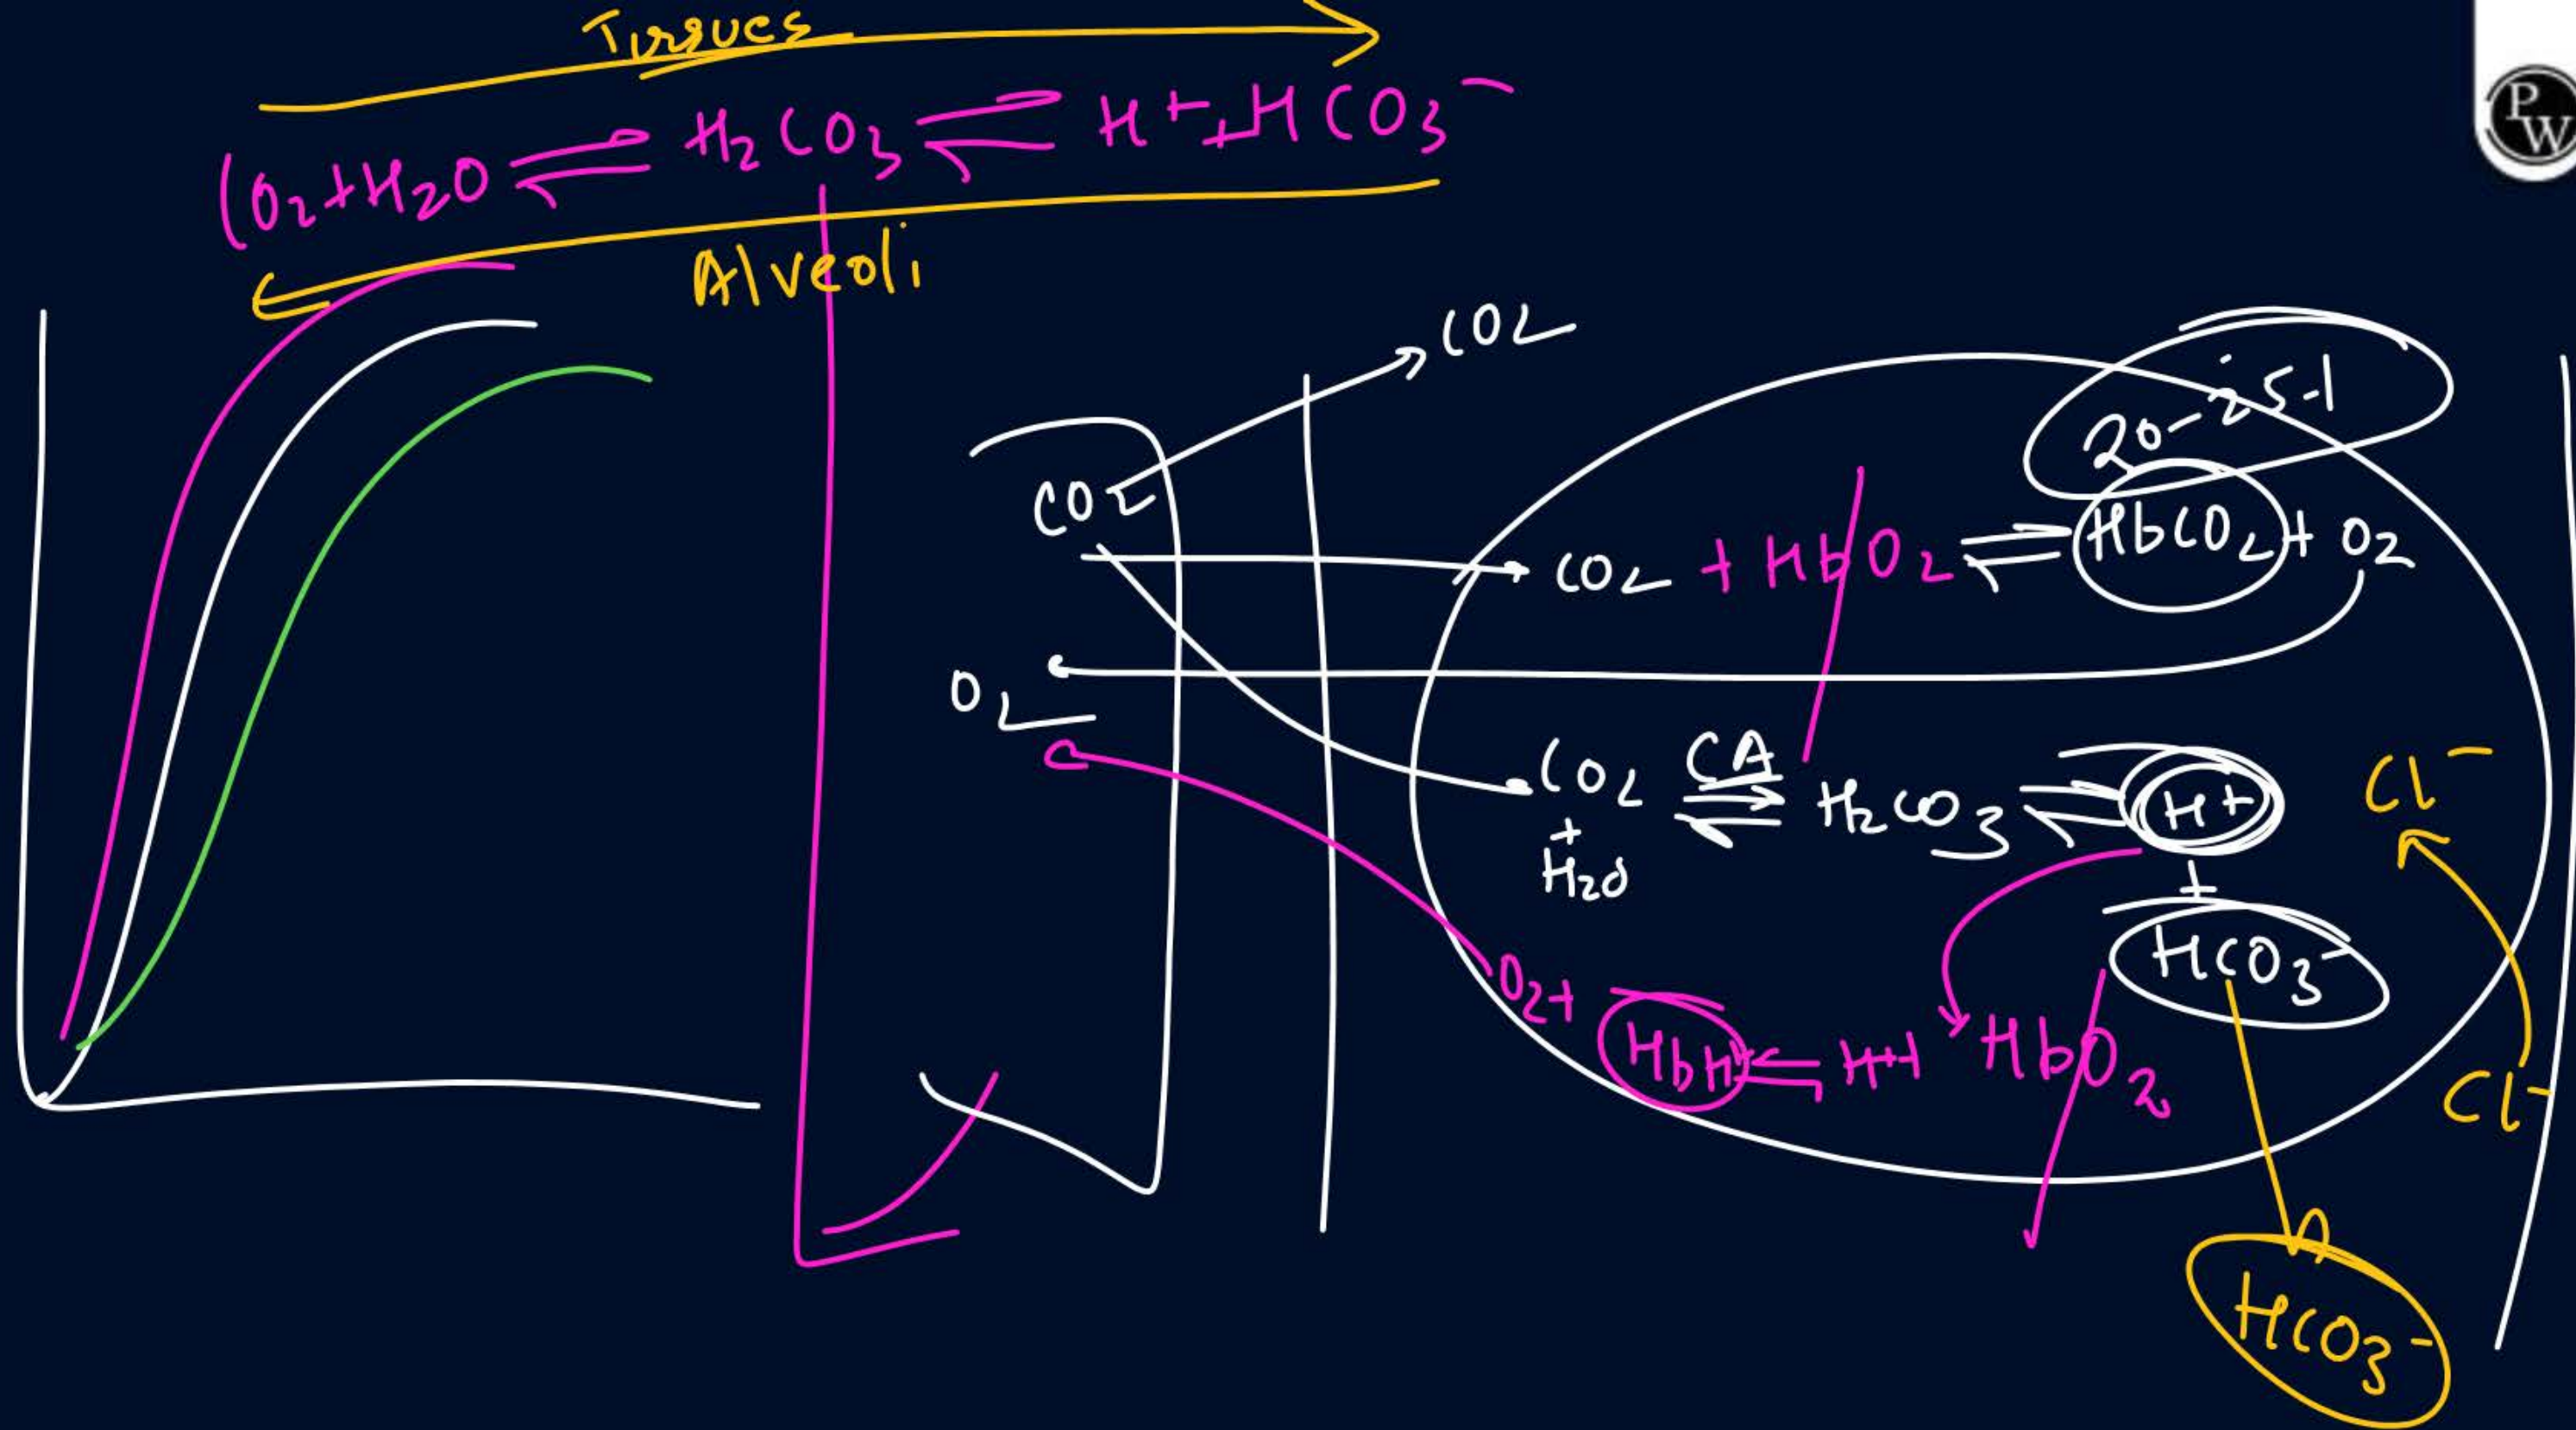 Tissues
CO2+H2O ⇌ H2CO3 ⇌ H+ + HCO3-
Alveoli
PW
CO2
20-25-1
CO2
CO2 + HbO2 ⇌ HbCO2 + O2
O2
CO2 CA ⇌ H2CO3 ⇌ H+
+
H2O
+
HCO3-
Cl-
O2+ HbH ⇌ H++ HbO2
Cl-
HCO3-